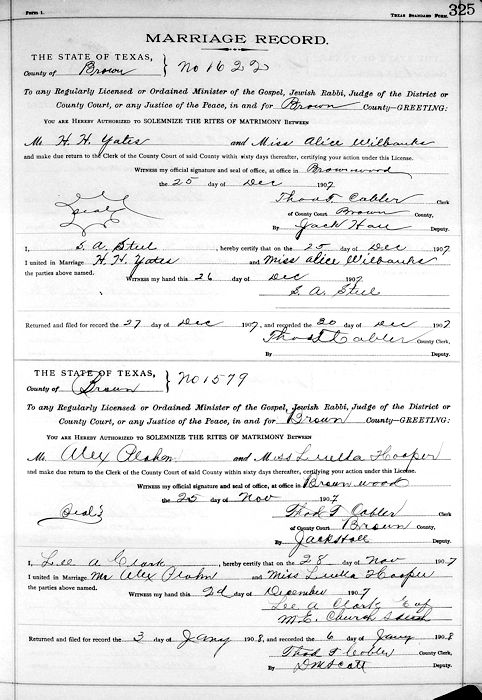 Form 1.
TEXAS STANDARD FORM.
325
MARRIAGE RECORD.
THE STATE OF TEXAS,
County of Brown
No 1622
To any Regularly Licensed or Ordained Minister of the Gospel, Jewish Rabbi, Judge of the District or
County Court, or any Justice of the Peace, in and for Brown County—GREETING:
YOU ARE HEREBY AUTHORIZED TO SOLEMNIZE THE RITES OF MATRIMONY BETWEEN
Mr. H. H. Yates and Miss Alice Wilbanks
and make due return to the Clerk of the County Court of said County within sixty days thereafter, certifying your action under this License.
WITNESS my official signature and seal of office, at office in Brownwood
the 25 day of Dec 1907
Seal
Thad T. Cabler Clerk
of County Court Brown County,
By Jack Hall Deputy.
I, S. A. Steel, hereby certify that on the 25 day of Dec 1907
I united in Marriage H. H. Yates and Miss Alice Wilbanks
the parties above named. WITNESS my hand this 26 day of Dec 1907
S. A. Steel
Returned and filed for record the 27 day of Dec 1907, and recorded the 30 day of Dec 1907
Thad T Cabler County Clerk,
By Deputy.
THE STATE OF TEXAS,
County of Brown
No 1579
To any Regularly Licensed or Ordained Minister of the Gospel, Jewish Rabbi, Judge of the District or
County Court, or any Justice of the Peace, in and for Brown County—GREETING:
YOU ARE HEREBY AUTHORIZED TO SOLEMNIZE THE RITES OF MATRIMONY BETWEEN
Mr. Alex and Miss Luella Hooper
and make due return to the Clerk of the County Court of said County within sixty days thereafter, certifying your action under this License.
WITNESS my official signature and seal of office, at office in Brownwood
the 25 day of Nov 1907
Seal
Thad T Cabler Clerk
of County Court Brown County,
By Jack Hall Deputy.
I, Lee A Clark, hereby certify that on the 28 day of Nov 1907
I united in Marriage Mr Alex and Miss Luella Hooper
the parties above named. WITNESS my hand this 2d day of December 1907
Lee A Clark
M. E. Church South
Returned and filed for record the 3 day of Jany 1908, and recorded the 6 day of Jany 1908
Thad T Cabler County Clerk,
By D M Scott Deputy.